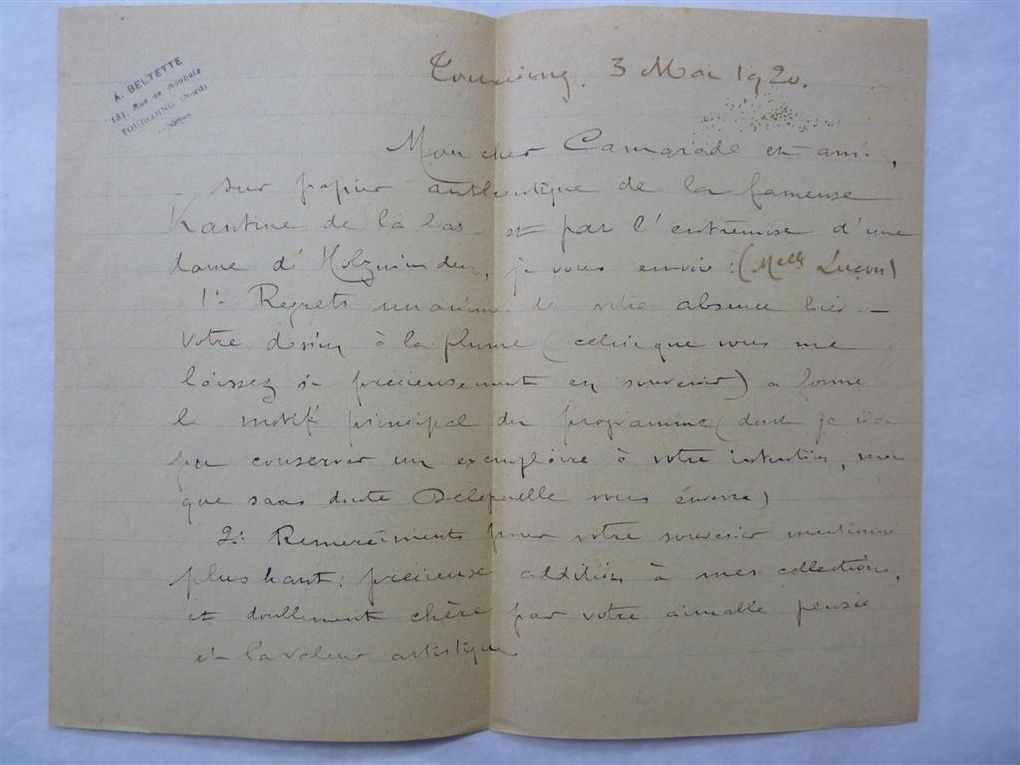 A. BELTETTE
131, Rue de Roubaix
TOURCOING (Nord)
Tourcoing 3 Mai 1920.
Mon cher Camarade et ami,
sur papier authentique de la fameuse
Kantine de là bas et par l'entremise d'une
dame d'Holzminden, je vous envoie : (Melle Luçon)
1º Regrets unanimes de votre absence hier. —
Votre dessin à la plume (celui que vous me
laissez si précieusement en souvenir) a formé
le motif principal du programme (dont je n'ai
pu conserver un exemplaire à votre intention, mais
que sans doute vous enverra)
2º Remerciements pour votre souvenir mentionné
plus haut : précieuse addition à mes collections,
et doublement chère par votre aimable pensée
et la valeur artistique